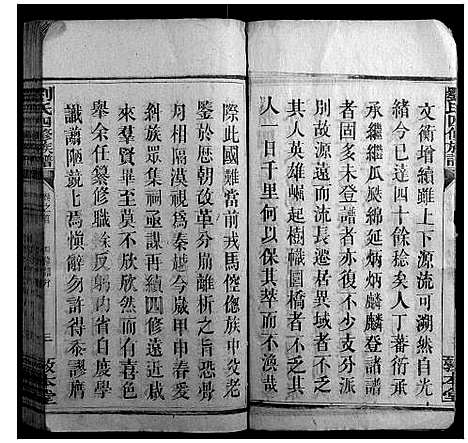 文衡增續雖上下源流可溯然自光
緒今已達四十餘稔矣人丁蕃衍承
承繼繼瓜瓞綿延炳炳麟麟登諸譜
者固多未登譜者亦復不少支分派
別故源遠而流長遷居異域者不乏
其人英雄崛起樹幟圜橋者不乏其人
人一日千里何以保其萃而不渙哉
際此國難當前戎馬倥傯族中父老
鑒於歷朝改革分崩離析之旨恐骨
肉相隔漠視為秦越今歲甲申春爰
糾族眾集祠亟謀再續四修遠近咸
來羣賢畢至莫不欣欣然而有喜色
舉余任纂修職余反躬內省自度學
識譾陋兢上焉慎辭勿許得忝謬膺
劉氏四修族譜
卷之首
三
敦本堂
劉氏四修族譜
敦本堂